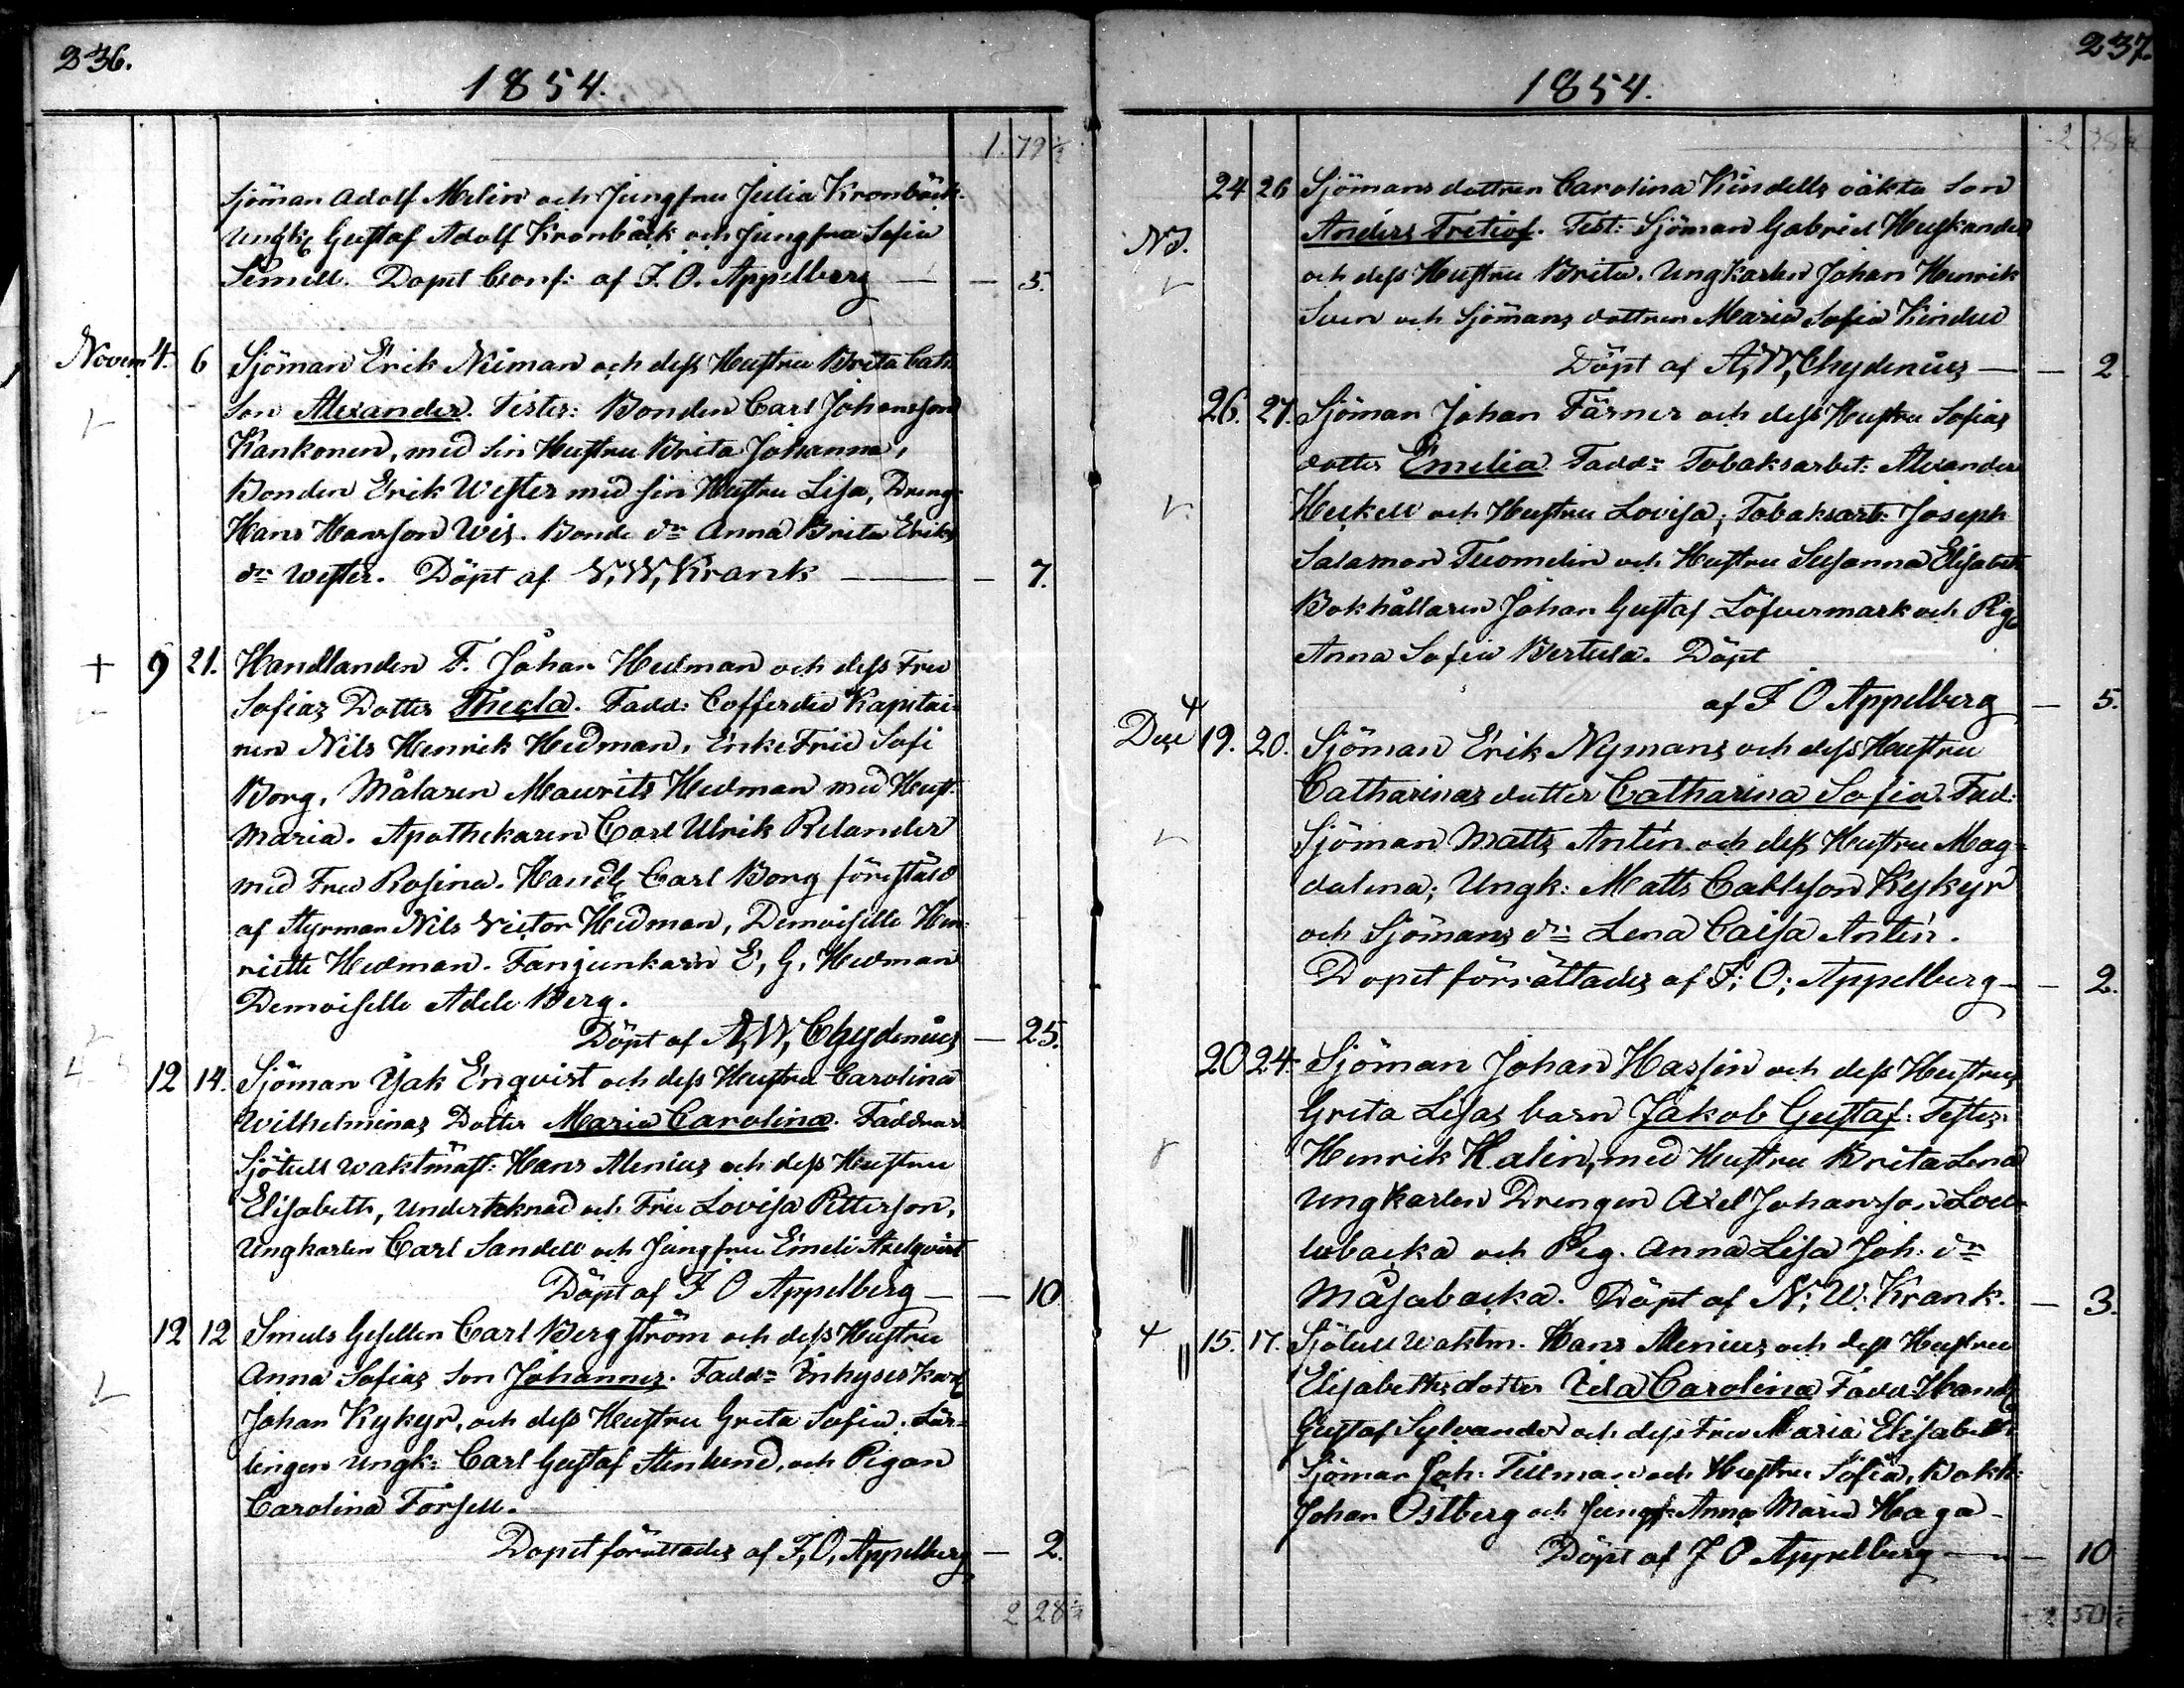 236.
1854.
1. 79 ½
Sjöman Adolf Melin och Jungfru Julia Kronbäck.
Ungk Gustaf Adolf Kronbäck och Jungfru Sofia
Semell. Dopet Conf: af F. O. Appelberg — — 5.
Novem 4. 6 Sjöman Erik Niman och dess Hustru Brita Cath.
Son Alexander. Testes: Bonden Carl Johansson
Kankonen, med sin Hustru Brita Johanna,
Bonden Erik Wester med sin Hustru Lisa, Dreng
Hans Hansson Wis. Bonde dr Anna Brita Eriks
dr Wester. Döpt af N, W, Krank — — 7.
+ 9 21. Handlanden F. Johan Hedman och dess Fru
Sofias Dotter Thecla. Fadd: Cofferdie Kapitai-
nen Nils Henrik Hedman, Enke Fru Sofi
Borg, Målaren Maurits Hedman med Hust.
Maria. Apothekaren Carl Ulrik Relander
med Fru Rosina. Handl Carl Borg föreståld
af Styrman Nils Victor Hedman, Demoiselle Hen-
riette Hedman. Fanjunkarn E, G, Hedman
Demoiselle Adele Berg.
Döpt af A, W, Chydenius — 25.
12 14. Sjöman Isak Enqvist och dess Hustru Carolina
Wilhelminas Dotter Maria Carolina. Faddrar
Sjötull waktmäst: Hans Alenius och dess Hustru
Elisabeth, Undertecknad och Fru Lovisa Petterson,
Ungkarlen Carl Sandell och Jungfru Emeli Axelqvist
Döpt af F O Appelberg — — 10
12 12 Smeds Gesellen Carl Bergström och dess Hustru
Anna Sofias Son Johannes. Fadd: Inhyses karl
Johan Kykyr, och dess Hustru Greta Sofia. Lär-
lingen Ungk: Carl Gustaf Stenlund, och Pigan
Carolina Forsell.
Dopet förättades af F, O, Appelberg — 2.
2 28 ½
237.
1854.
2 28 ½
24 26 Sjömans dottren Carolina Kindells oäkta Son
Anders Fretiof. Test: Sjöman Gabriel Huskander
Nd.
och dess Hustru Brita. Ungkarlen Johan Henrik
Sven och Sjömans dottren Maria Sofia Kindell
Döpt af A, W, Chydenius — — 2
26. 27. Sjöman Johan Färner och dess Hustru Sofias
dotter Emelia. Fadd: Tobaksarbet: Alexander
Heikell och Hustru Lovisa, Tobaksarb: Joseph
Salamon Tuomelin och Hustru Susanna Elisabeth
Bokhållaren Johan Gustaf Löfvermark och Pig
Anna Sofia Bertula. Döpt
af F O Appelberg — 5.
Dec 19. 20. Sjöman Erik Nymans och dess Hustru
Catharinas dotter Catharina Sofia. Fad:
Sjöman Matts Antin och dess Hustru Mag-
dalena; Ungk: Matts Carlsson Kykyr
och Sjömans dr Lena Caisa Antin.
Dopet förrättades af F, O, Appelberg — — 2.
20 24. Sjöman Johan Hassin och dess Hustrus
Greta Lisas barn Jakob Gustaf. Testes:
Henrik Kalin, med Hustru Brita Lena
Ungkarlen Drengen Axel Johansson
backa och Pig. Anna Lisa Joh: dr
Måsabacka. Döpt af N, W, Krank. — 3.
+ 15. 17. Sjötull Waktm. Hans Alenius och dess Hustru
Elisabeths dotter Ida Carolina Fadd Handl
Gustaf Sylvander och dess Fru Maria Elisabeth
Sjöman Joh: Tillman och Hustru Sofia, Bokh:
Johan Östberg och Jungf: Anna Maria Haga –
Döpt af F O Appelberg — — 10
2 50 ½